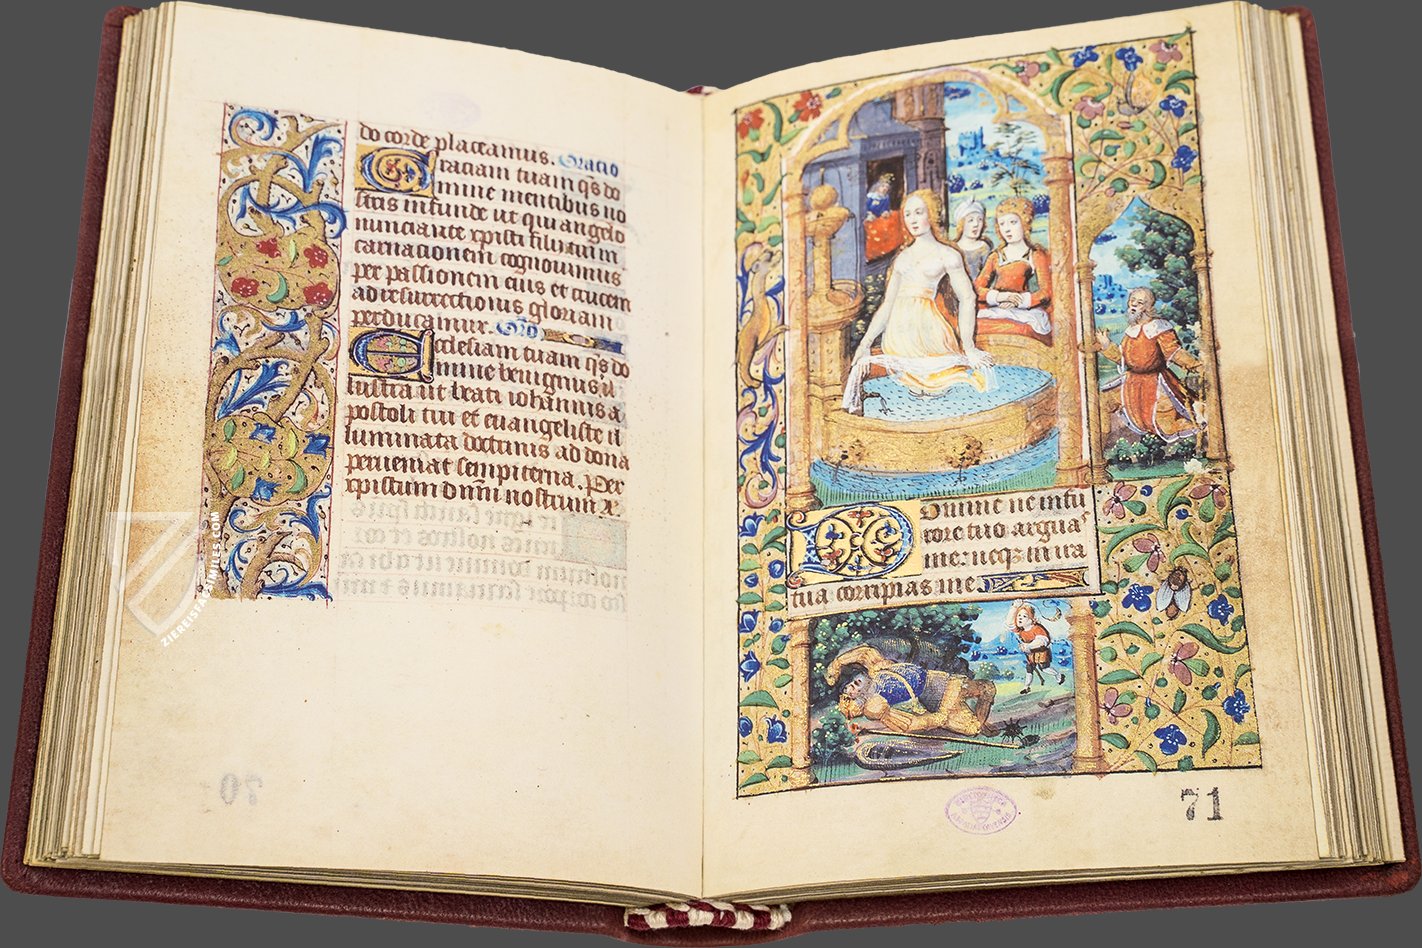 do corde placeamus. Oratio
Graciam tuam qs do
mine mentibus no
stris infunde ut qui angelo
nunciante xpisti filii tui in
carnacionem cognovimus
per passionem eius et crucem
ad resurrectionis gloriam
perducamur. Oro
Ecclesiam tuam qs do
mine benignus il
lustra ut beati iohannis a
postoli tui et euangeliste il
luminata doctrinis ad dona
perueniat sempiterna. Per
xpistum dnm nostrum x.
70
ZIEREIS FACSIMILES.COM
Domine ne in fu
rore tuo arguas
me: neqs in ira
tua corripias me
71